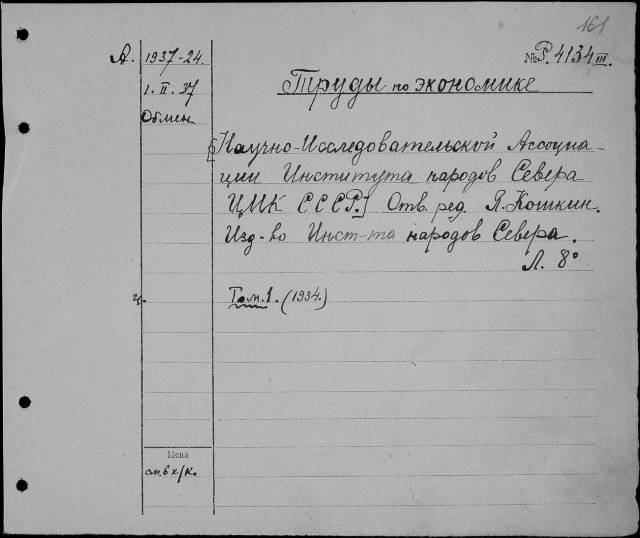 161
А. 1937-24. №Р. 4134 III.
1. II. 37
Труды по экономике
Обмен
[Научно-Исследовательской Ассоциа-
ции Института народов Севера
ЦИК СССР.] Отв. ред. Я. Кошкин.
Изд-во Инст-та народов Севера.
Л. 8°
ч. Том. 1. (1934.)
Цена
см. в к/к.